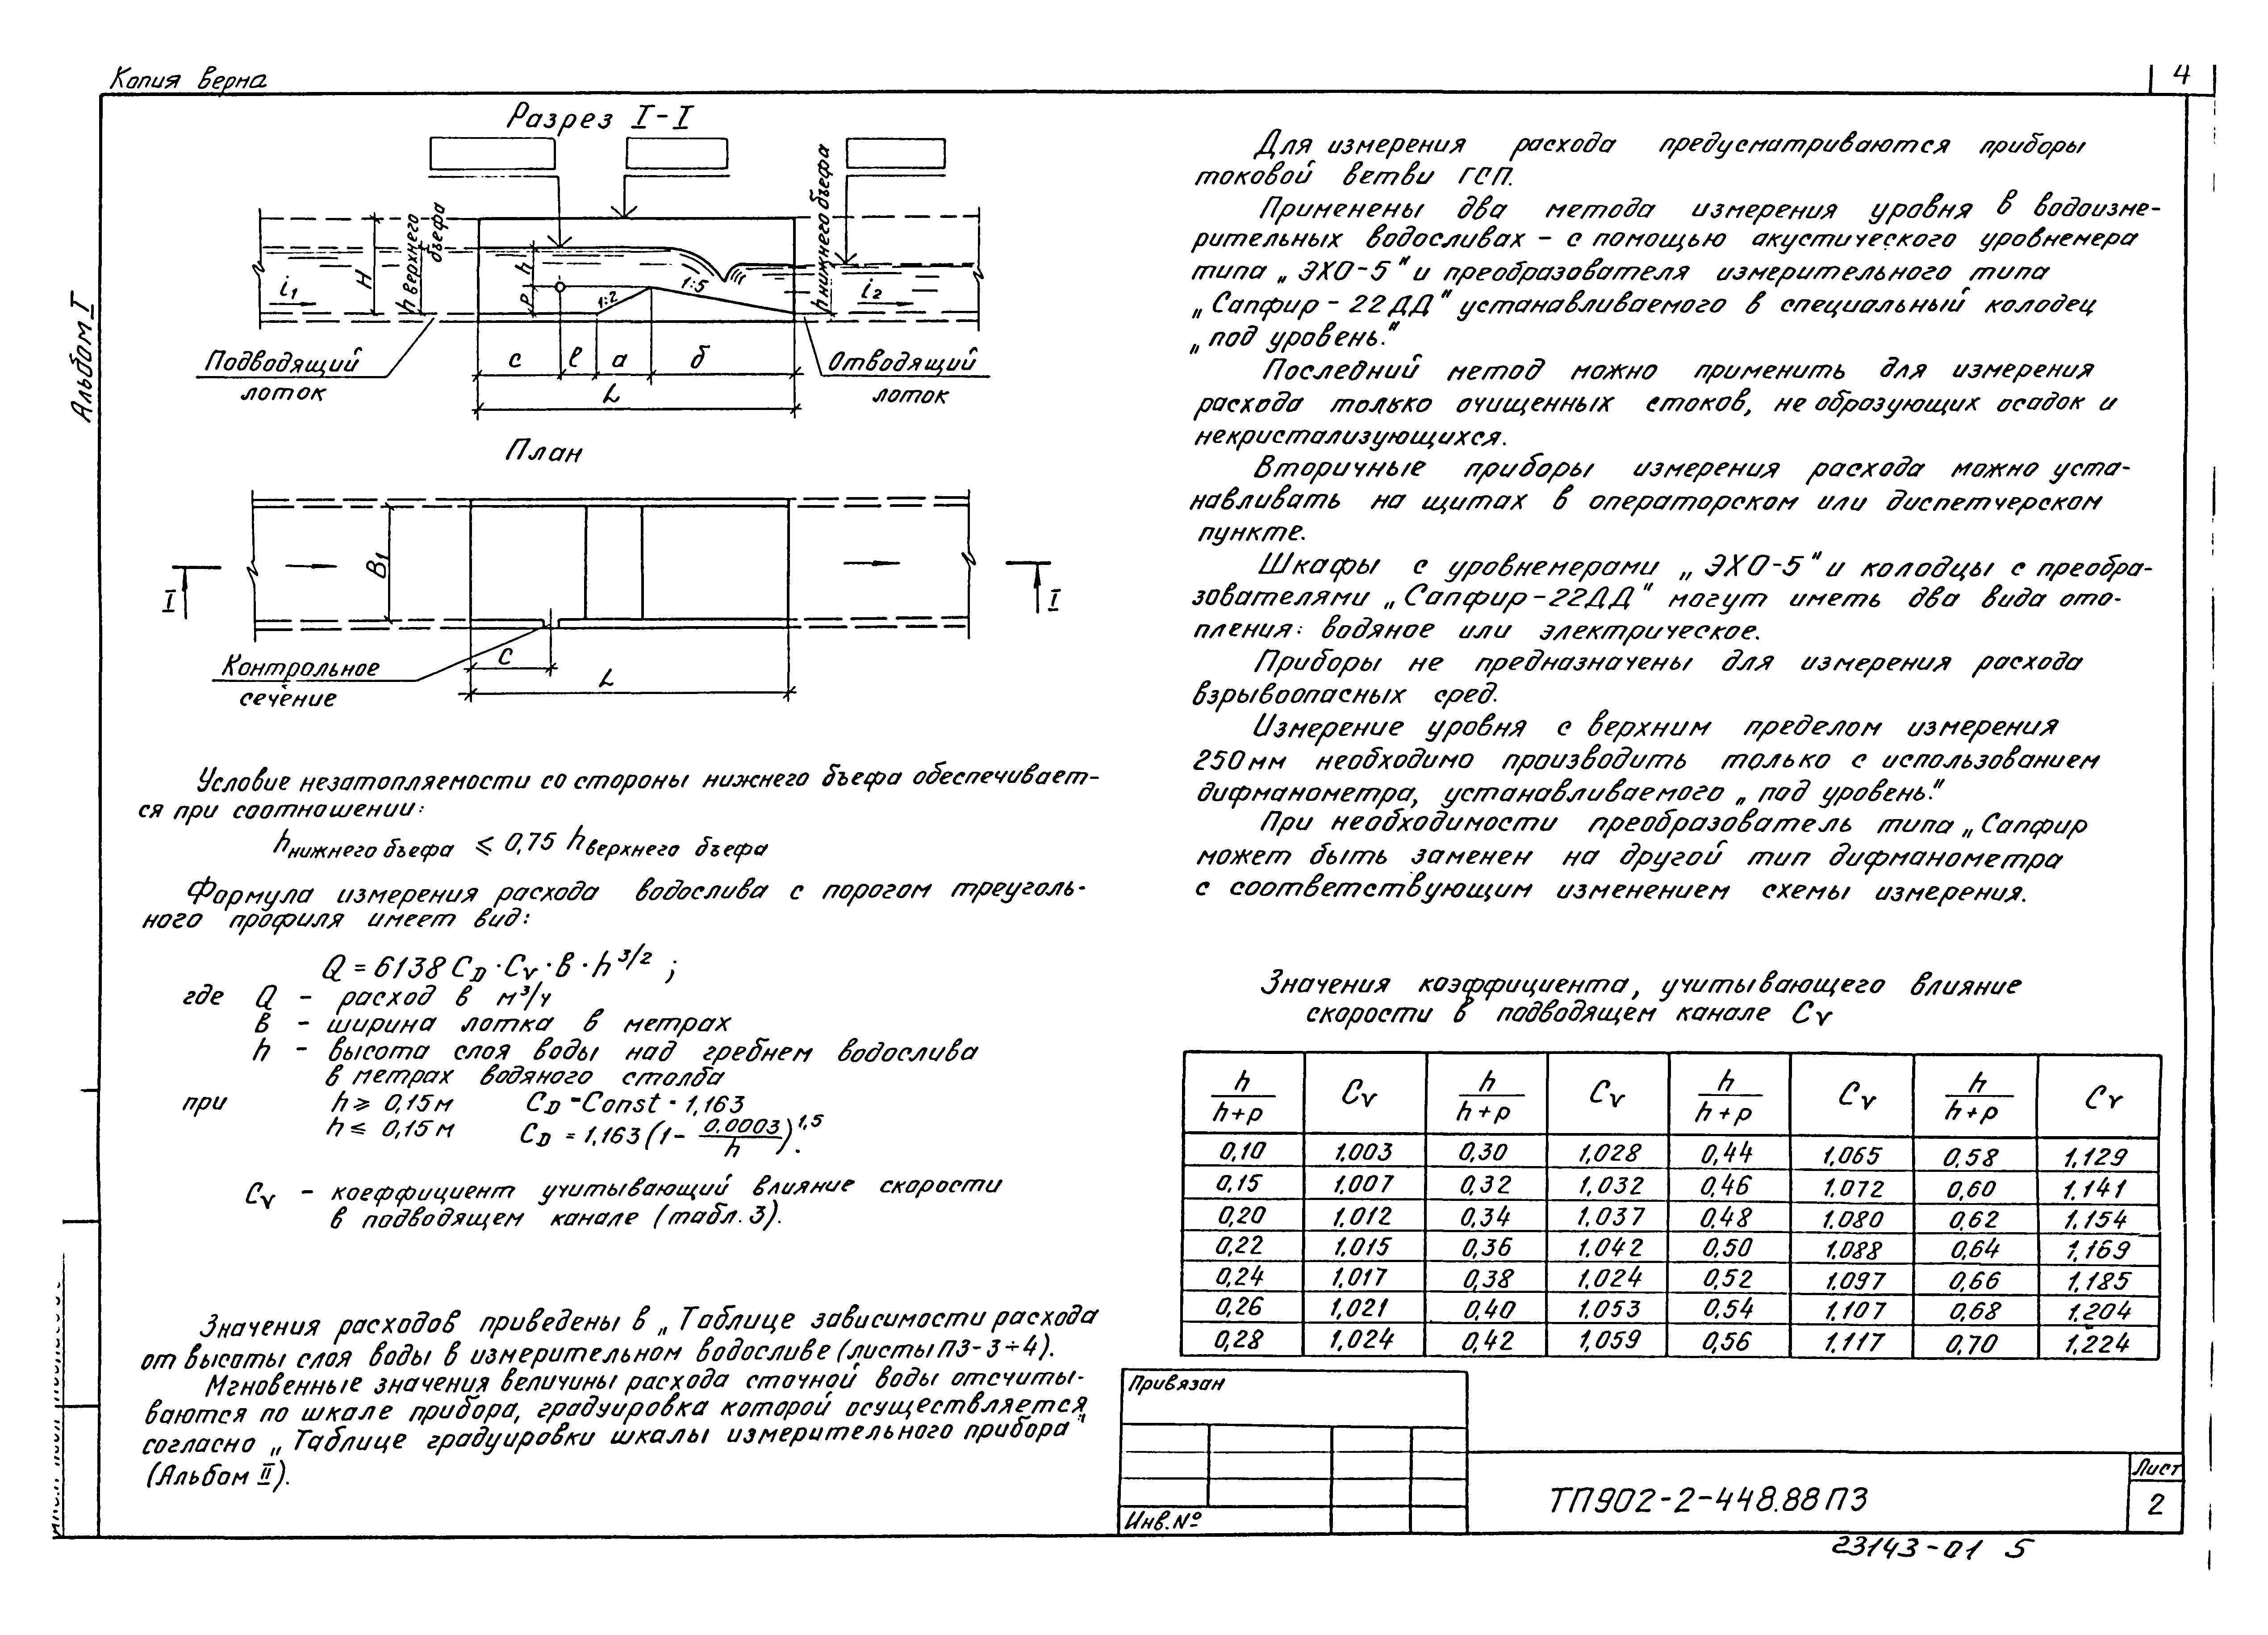 Копия верна
4
Альбом I
Разрез I-I
h верхнего бъефа
h нижнего бъефа
H
h
p
i1
1:2
1:5
i2
Подводящий лоток
c l а б
L
Отводящий лоток
План
B1
I
I
Контрольное сечение
c
L
Условие незатопляемости со стороны нижнего бъефа обеспечивает-
ся при соотношении:
hнижнего бъефа ≤ 0,75 hверхнего бъефа
Формула измерения расхода водослива с порогом треуголь-
ного профиля имеет вид:
Q = 6138 CD · Cv · в · h^3/2 ;
где Q - расход в м³/ч
в - ширина лотка в метрах
h - высота слоя воды над гребнем водослива
в метрах водяного столба
при h ≥ 0,15м CD = Const = 1,163
h ≤ 0,15м CD = 1,163 (1 - 0,0003/h)^1,5.
Cv - коеффициент учитывающий влияние скорости
в подводящем канале (табл. 3).
Значения расходов приведены в „Таблице зависимости расхода
от высоты слоя воды в измерительном водосливе (листы ПЗ-3÷4).
Мгновенные значения величины расхода сточной воды отсчиты-
ваются по шкале прибора, градуировка которой осуществляется
согласно „Таблице градуировки шкалы измерительного прибора"
(Альбом II).
Для измерения расхода предусматриваются приборы
токовой ветви ГСП.
Применены два метода измерения уровня в водоизме-
рительных водосливах - с помощью акустического уровнемера
типа „ЭХО-5" и преобразователя измерительного типа
„Сапфир - 22ДД" устанавливаемого в специальный колодец
„под уровень."
Последний метод можно применить для измерения
расхода только очищенных стоков, не образующих осадок и
некристализующихся.
Вторичные приборы измерения расхода можно уста-
навливать на щитах в операторском или диспетчерском
пункте.
Шкафы с уровнемерами „ЭХО-5" и колодцы с преобра-
зователями „Сапфир-22ДД" могут иметь два вида ото-
пления: водяное или электрическое.
Приборы не предназначены для измерения расхода
взрывоопасных сред.
Измерение уровня с верхним пределом измерения
250мм необходимо производить только с использованием
дифманометра, устанавливаемого „под уровень."
При необходимости преобразователь типа „Сапфир
может быть заменен на другой тип дифманометра
с соответствующим изменением схемы измерения.
Значения коэффициента, учитывающего влияние
скорости в подводящем канале Cv
h/h+p Cv h/h+p Cv h/h+p Cv h/h+p Cv
0,10 1.003 0,30 1,028 0,44 1,065 0,58 1,129
0,15 1.007 0,32 1,032 0,46 1,072 0,60 1,141
0,20 1,012 0,34 1,037 0,48 1,080 0,62 1,154
0,22 1,015 0,36 1,042 0,50 1,088 0,64 1,169
0,24 1,017 0,38 1,024 0,52 1,097 0,66 1,185
0,26 1,021 0,40 1,053 0,54 1,107 0,68 1,204
0,28 1,024 0,42 1,059 0,56 1,117 0,70 1,224
Привязан
Инв.№
ТП902-2-448.88ПЗ
Лист
2
23143-01 5